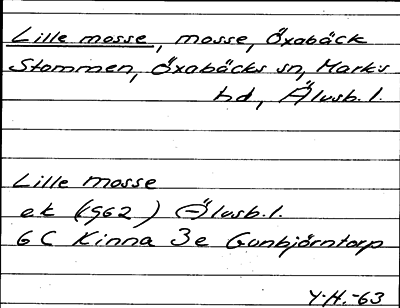 Lille mosse, mosse, Öxabäck
Stommen, Öxabäcks sn, Marks
hd, Älvsb. l.
Lille mosse
ek (1962) Älvsb. l.
6 C Kinna 3 e Gunbjörntorp
Y.H.-63